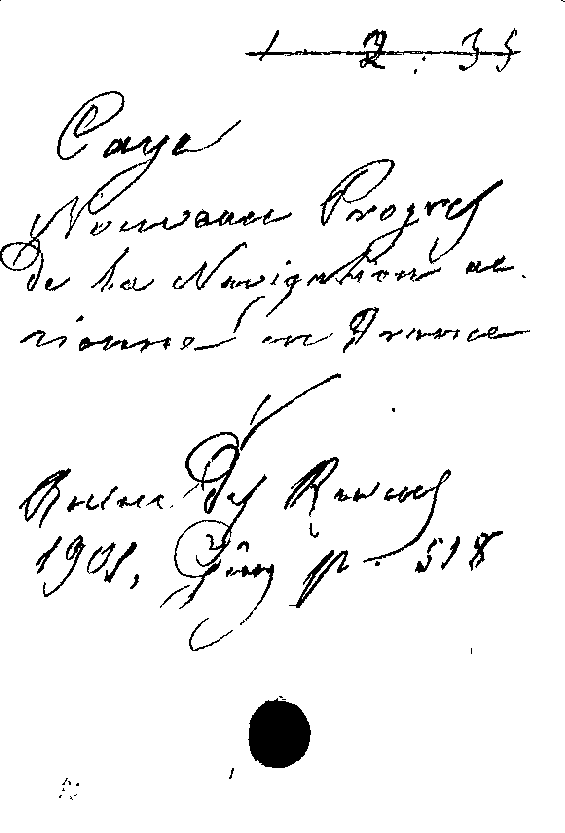 1 2 . 35
Caye
Nouveau Progres
de la Navigation ae
rienne en France
Revue des Revues
1901, p. 518